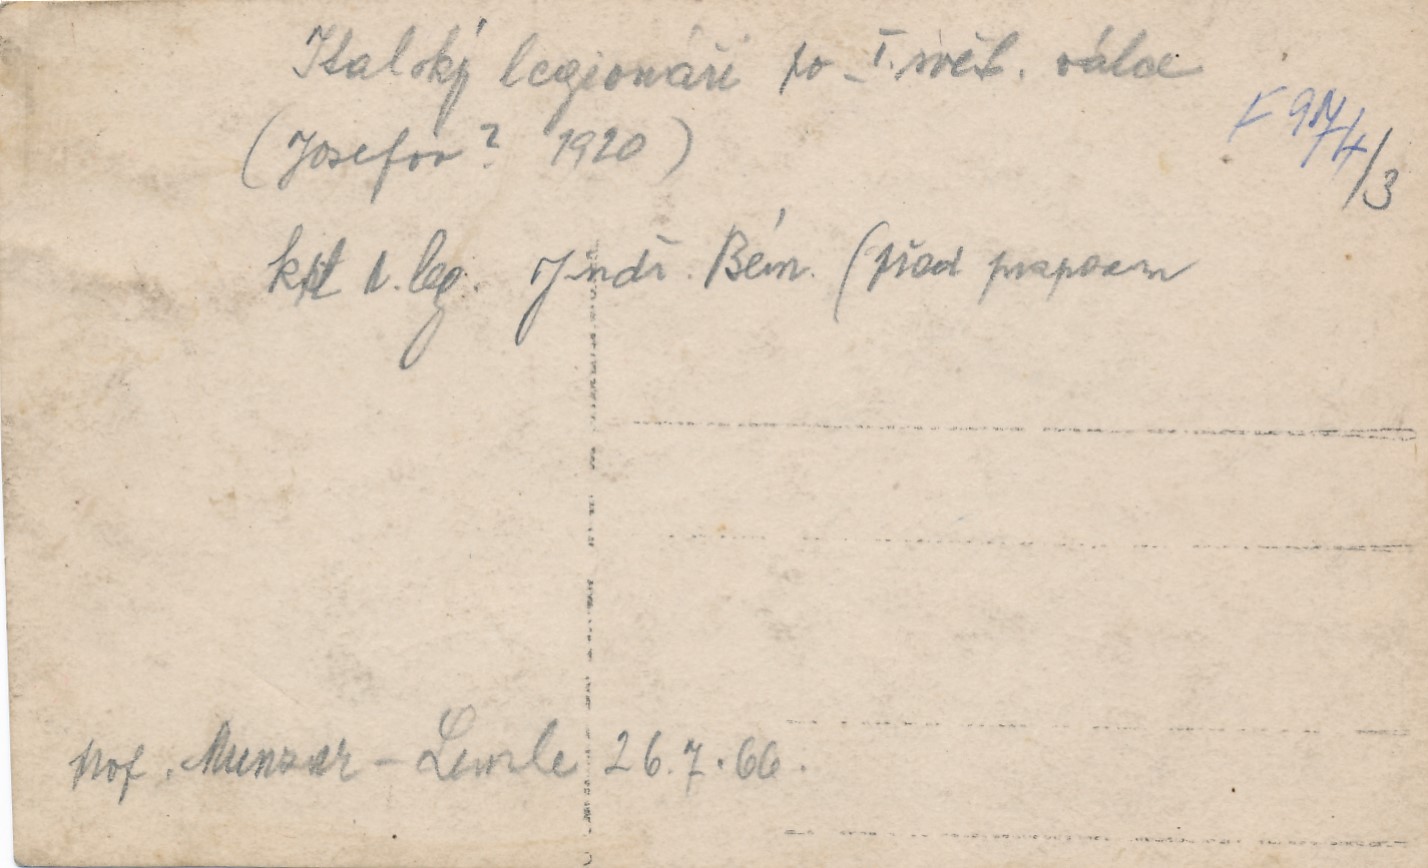 Italský legionáři po I. svět. válce
F 97/4/3
(Josefov? 1920)
kpt. leg. Jindř. Bém. (před praporem
prof. Munzar - Lemle 26.7.66.